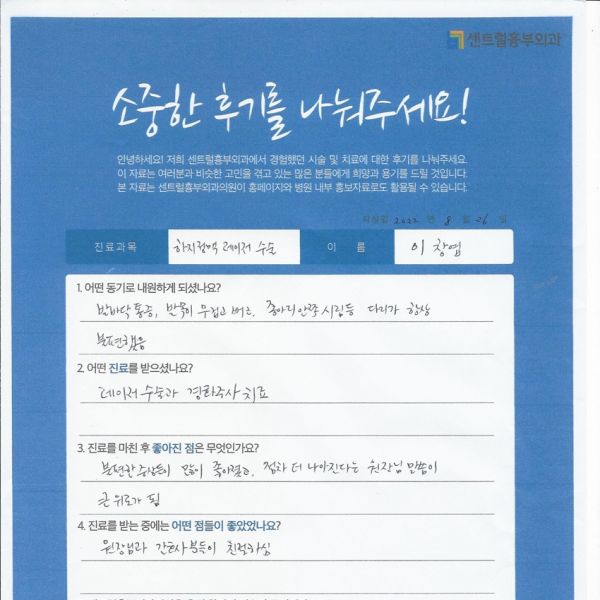 센트럴흉부외과
소중한 후기를 나눠주세요!
안녕하세요! 저희 센트럴흉부외과에서 경험했던 시술 및 치료에 대한 후기를 나눠주세요.
이 자료는 여러분과 비슷한 고민을 겪고 있는 많은 분들에게 희망과 용기를 드릴 것입니다.
본 자료는 센트럴흉부외과의원이 홈페이지와 병원 내부 홍보자료로도 활용될 수 있습니다.
작성일 2022 년 8 월 26 일
진료과목 하지정맥 레이저 수술 이 름 이창엽
1. 어떤 동기로 내원하게 되셨나요?
발바닥 통증, 발목이 무겁고 버르, 종아리 안쪽 시림등 다리가 항상
불편했음
2. 어떤 진료를 받으셨나요?
레이저 수술과 경화주사 치료
3. 진료를 마친 후 좋아진 점은 무엇인가요?
불편한 증상들이 많이 좋아졌고, 점차 더 나아진다는 원장님 말씀이
큰 위로가 됨
4. 진료를 받는 중에는 어떤 점들이 좋았었나요?
원장님과 간호사분들이 친절하심